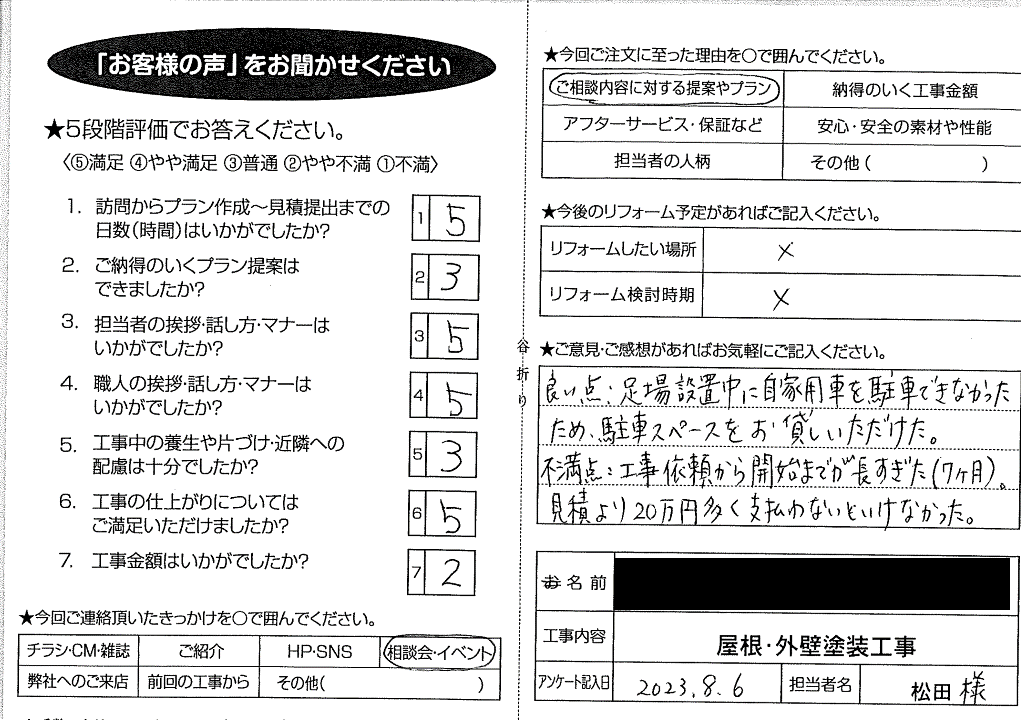 「お客様の声」をお聞かせください
★5段階評価でお答えください。
〈⑤満足 ④やや満足 ③普通 ②やや不満 ①不満〉
1. 訪問からプラン作成～見積提出までの
日数(時間)はいかがでしたか?
1 5
2. ご納得のいくプラン提案は
できましたか?
2 3
3. 担当者の挨拶・話し方・マナーは
いかがでしたか?
3 5
4. 職人の挨拶・話し方・マナーは
いかがでしたか?
4 5
5. 工事中の養生や片づけ・近隣への
配慮は十分でしたか?
5 3
6. 工事の仕上がりについては
ご満足いただけましたか?
6 5
7. 工事金額はいかがでしたか?
7 2
★今回ご連絡頂いたきっかけを○で囲んでください。
チラシ・CM・雑誌 ご紹介 HP・SNS 相談会・イベント
弊社へのご来店 前回の工事から その他( )
谷折り
★今回ご注文に至った理由を○で囲んでください。
ご相談内容に対する提案やプラン 納得のいく工事金額
アフターサービス・保証など 安心・安全の素材や性能
担当者の人柄 その他( )
★今後のリフォーム予定があればご記入ください。
リフォームしたい場所 ×
リフォーム検討時期 ×
★ご意見・ご感想があればお気軽にご記入ください。
良い点:足場設置中に自家用車を駐車できなかった
ため、駐車スペースをお貸しいただけた。
不満点:工事依頼から開始までが長すぎた(7ヶ月)。
見積より20万円多く支払わないといけなかった。
お名前
工事内容 屋根・外壁塗装工事
アンケート記入日 2023.8.6 担当者名 松田様